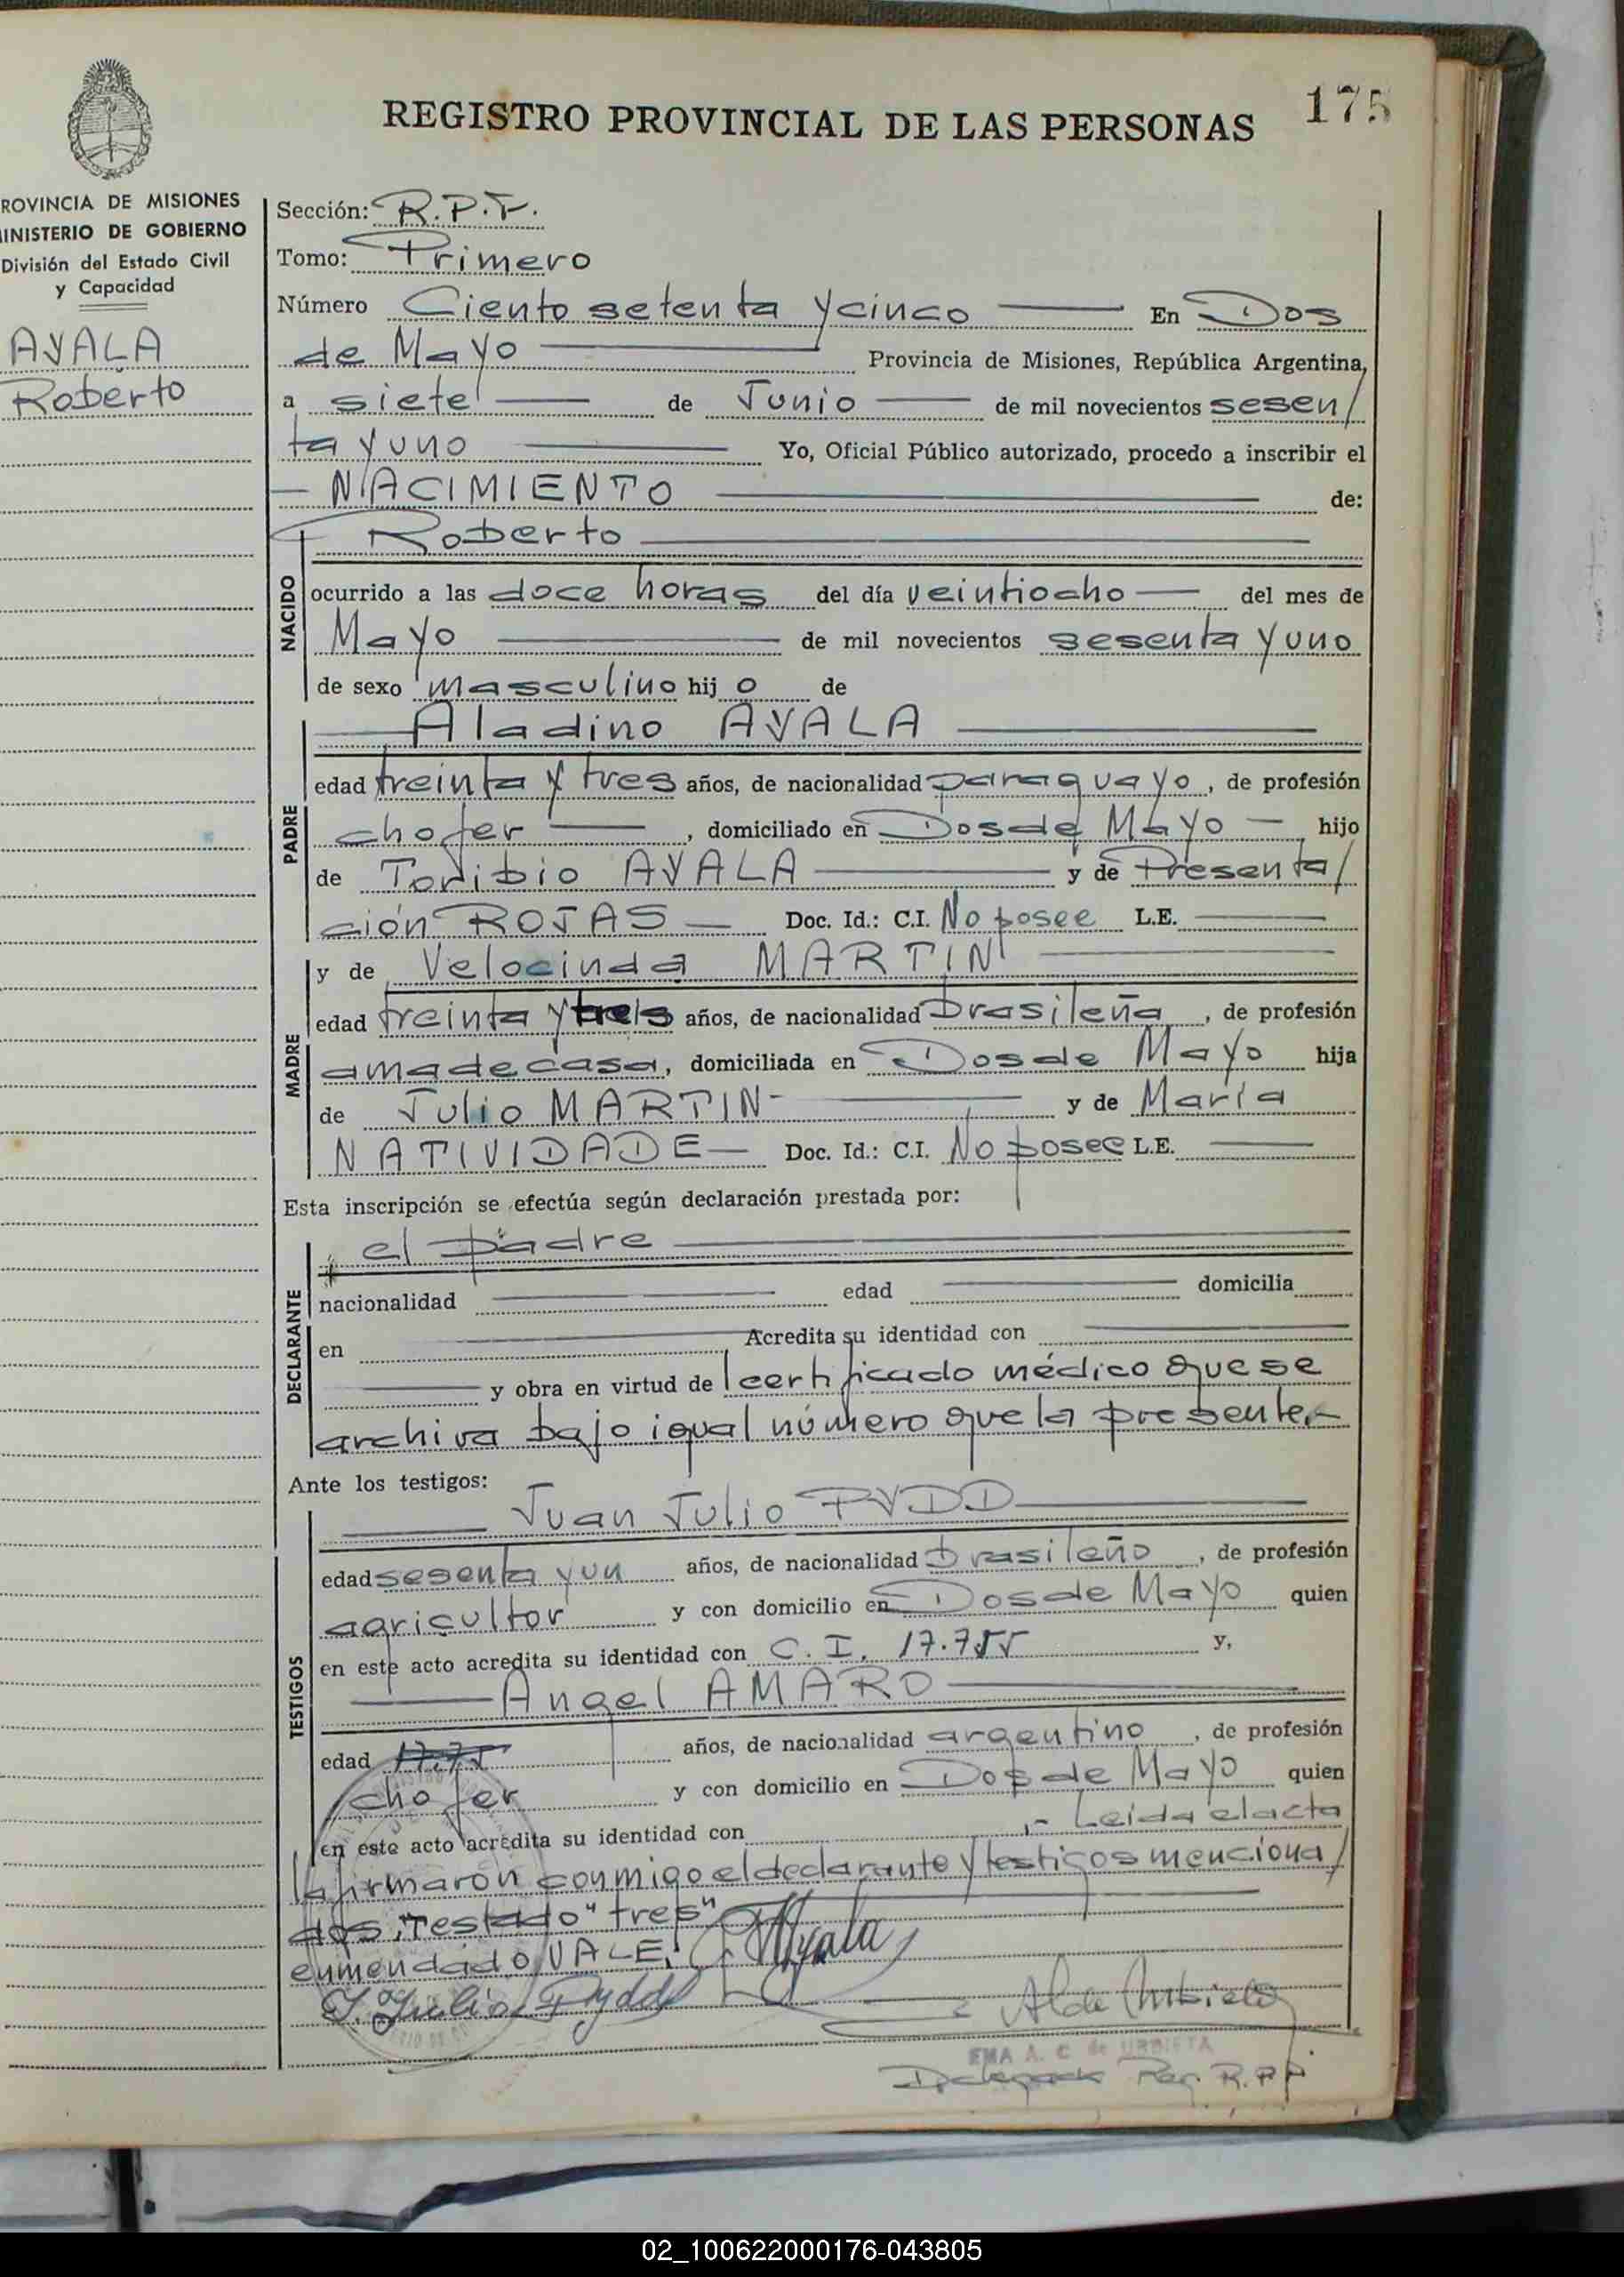 175
REGISTRO PROVINCIAL DE LAS PERSONAS
ROVINCIA DE MISIONES
INISTERIO DE GOBIERNO
División del Estado Civil
y Capacidad
AYALA
Roberto
Sección: R.P.F.
Tomo: Primero
Número Ciento setenta y cinco En Dos
de Mayo Provincia de Misiones, República Argentina,
a siete de Junio de mil novecientos sesen/
ta y uno Yo, Oficial Público autorizado, procedo a inscribir el
NACIMIENTO de:
NACIDO
Roberto
ocurrido a las doce horas del día veintiocho del mes de
Mayo de mil novecientos sesenta y uno
de sexo masculino hij o de
PADRE
Aladino AYALA
edad treinta y tres años, de nacionalidad paraguayo, de profesión
chofer, domiciliado en Dos de Mayo hijo
de Toribio AYALA y de Presenta/
ción ROJAS Doc. Id.: C.I. No posee L.E.
MADRE
y de Velocinda MARTIN
edad treinta y tres años, de nacionalidad brasileña, de profesión
ama de casa, domiciliada en Dos de Mayo hija
de Julio MARTIN y de María
NATIVIDADE Doc. Id.: C.I. No posee L.E.
Esta inscripción se efectúa según declaración prestada por:
DECLARANTE
el padre
nacionalidad edad domicilia
en Acredita su identidad con
y obra en virtud de certificado médico que se
archiva bajo igual número que la presente.-
Ante los testigos:
TESTIGOS
Juan Julio PYDD
edad sesenta y un años, de nacionalidad brasileño, de profesión
agricultor y con domicilio en Dos de Mayo quien
en este acto acredita su identidad con C.I. 17.755 y,
Angel AMARO
edad 17.75 años, de nacionalidad argentino, de profesión
chofer y con domicilio en Dos de Mayo quien
en este acto acredita su identidad con .- Leida el acta
la firmaron conmigo el declarante y testigos menciona/
dos, "Testado" "tres"
enmendado, VALE.
Ayala
J. Julio Pydd
Alde Urbieta
EMA A. C de URBIETA
Delegada Reg. R.P.F
02_100622000176-043805